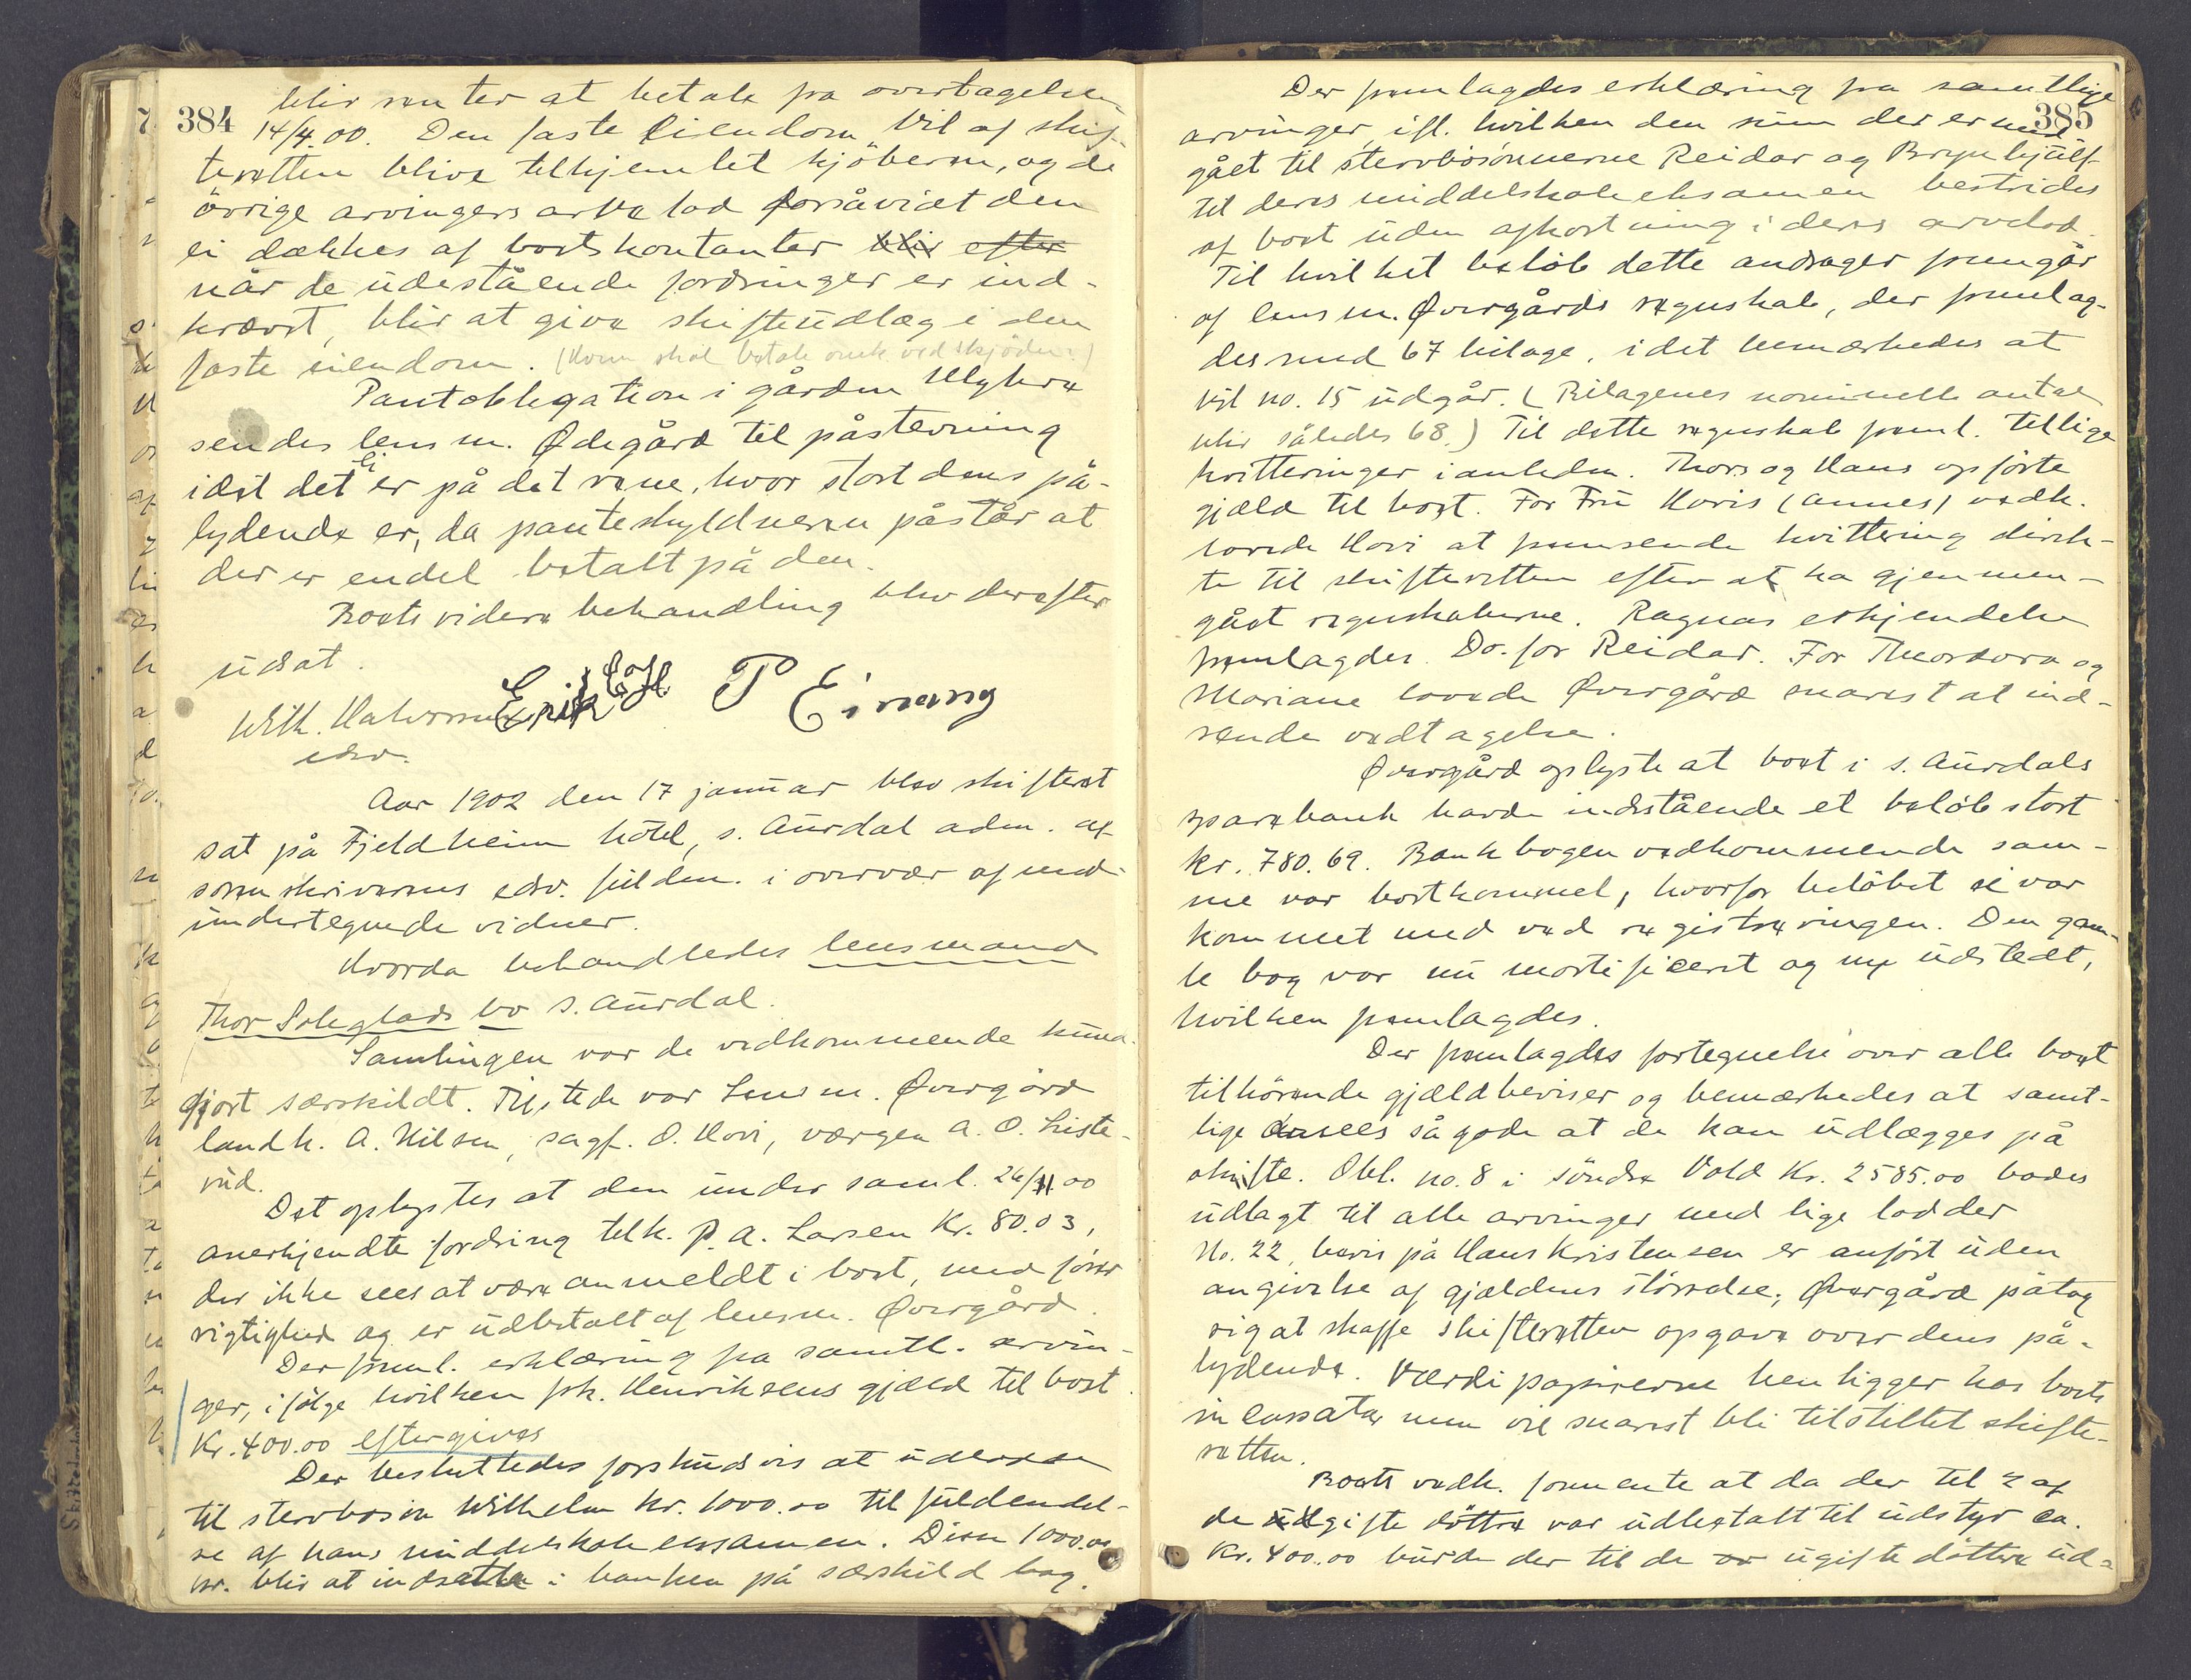 384
blir renter at betale fra overtagelsen
14/4.00. Den faste Eiendom vil af skif-
teretten blive tilhjemlet kjöberen, og de
övrige arvingers arvelod forsåvidt den
ei dækkes af boets kontanter blir efter
når de udestående fordringer er ind-
krævet, blir at give skifteudlæg i den
faste eiendom. (Kom skal betale omk ved skjödn.)
Pantobligation i gården
sendes lensm. Ødegård til påstevning
idet det ei er på det rene, hvor stort dens på-
lydende er, da panteskyldneren påstår at
der er endel betalt på den.
Boets videre behandling blev derefter
udsat.
Wilh. Halvorsen Erik E.H. T Einang
edsv.
Aar 1902 den 17 januar blev skifteret
sat på Fjeldheim hotel, s. Aurdal adm. af
sorenskriverens edsv. fuldm. i overvær af med-
undertegnede vidner.
Hvorda behandledes lensmand
Thor Soleglads bo s. Aurdal.
Samlingen var de vedkommende kund-
gjort særskildt. Tilstede var Lensm. Øvergård
landh. A. Nilsen, sagf. O. Hovi, værgen A. O. Liste-
rud.
Det oplystes at den under saml. 26/11 00
anerkjendte fordring tilh. P. A. Larsen Kr. 80.03,
der ikke sees at være anmeldt i boet, med förer
rigtighed og er udbetalt af lensm. Øvergård.
Der freml. erklæring fra samtl. arvin-
ger, ifölge hvilken frk. Henriksens gjæld til boet
Kr. 400.00 eftergives
Der besluttedes forskudsvis at uderede
til stervbosön Wilhelm Kr. 1000.00 til fuldendel-
se af hans middelskoleexsamen. Disse 1000.00
kr. blir at indsætte i banken på særskild bog.
385
Der fremlagdes erklæring fra samtlige
arvinger, ifl. hvilken den sum der er med
gået til stervbosönnerne Reidar og Brynhjulf
til deres middelskoleeksamen bestrides
af boet uden afkortning i deres arvelod.
Til hvilket belöb dette andrager fremgår
af lensm. Øvergårds regnskab, der fremlag-
des med 67 bilage, idet bemærkedes at
bil no. 15 udgår. (Bilagenes nominelle antal
blir således 68.) Til dette regnskab freml. tillige
kvitteringer i anledn. Thors og Hans opförte
gjæld til boet. For Fru Hovis (Annes) vedk.
lovede Hovi at fremsende kvittering direk-
te til skifteretten efter at ha gjennem-
gået regnskaberne. Ragnas erkjendelse
fremlagdes. Do. for Reidar. For Theodora og
Mariane lovede Øvergård snarest at ind-
sende vedtagelse.
Øvergård oplyste at boet i s. Aurdals
sparebank havde indestående et belöb stort
kr. 780.69. Bankbogen vedkommende sam-
me var bortkommet, hvorfor belöbet ei var
kommet med ved registreringen. Den gam-
le bog var nu mortificeret og ny udstedt,
hvilken fremlagdes.
Der fremlagdes fortegnelse over alle boet
tilhörende gjældbeviser og bemærkedes at samt-
lige ansees så gode at de kan udlægges på
skifte. Obl. no. 8 i söndre Vold Kr. 2585.00 bades
udlagt til alle arvinger med lige lodder
No. 22, bevis på Hans Kristensen er anfört uden
angivelse af gjældens störrelse; Øvergård påtog
sig at skaffe skifteretten opgave over dens på-
lydende. Værdipapirerne hen ligger hos boets
incassator men vil snarest bli tilstillet skifte-
retten.
Boets vedk. formente at da der til 2 af
de gifte döttre var udbetalt til udstyr ca.
Kr. 400.00 burde der til de ugifte döttre ud-